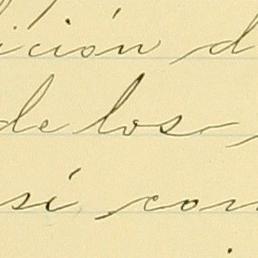 ición d
de los
sí com